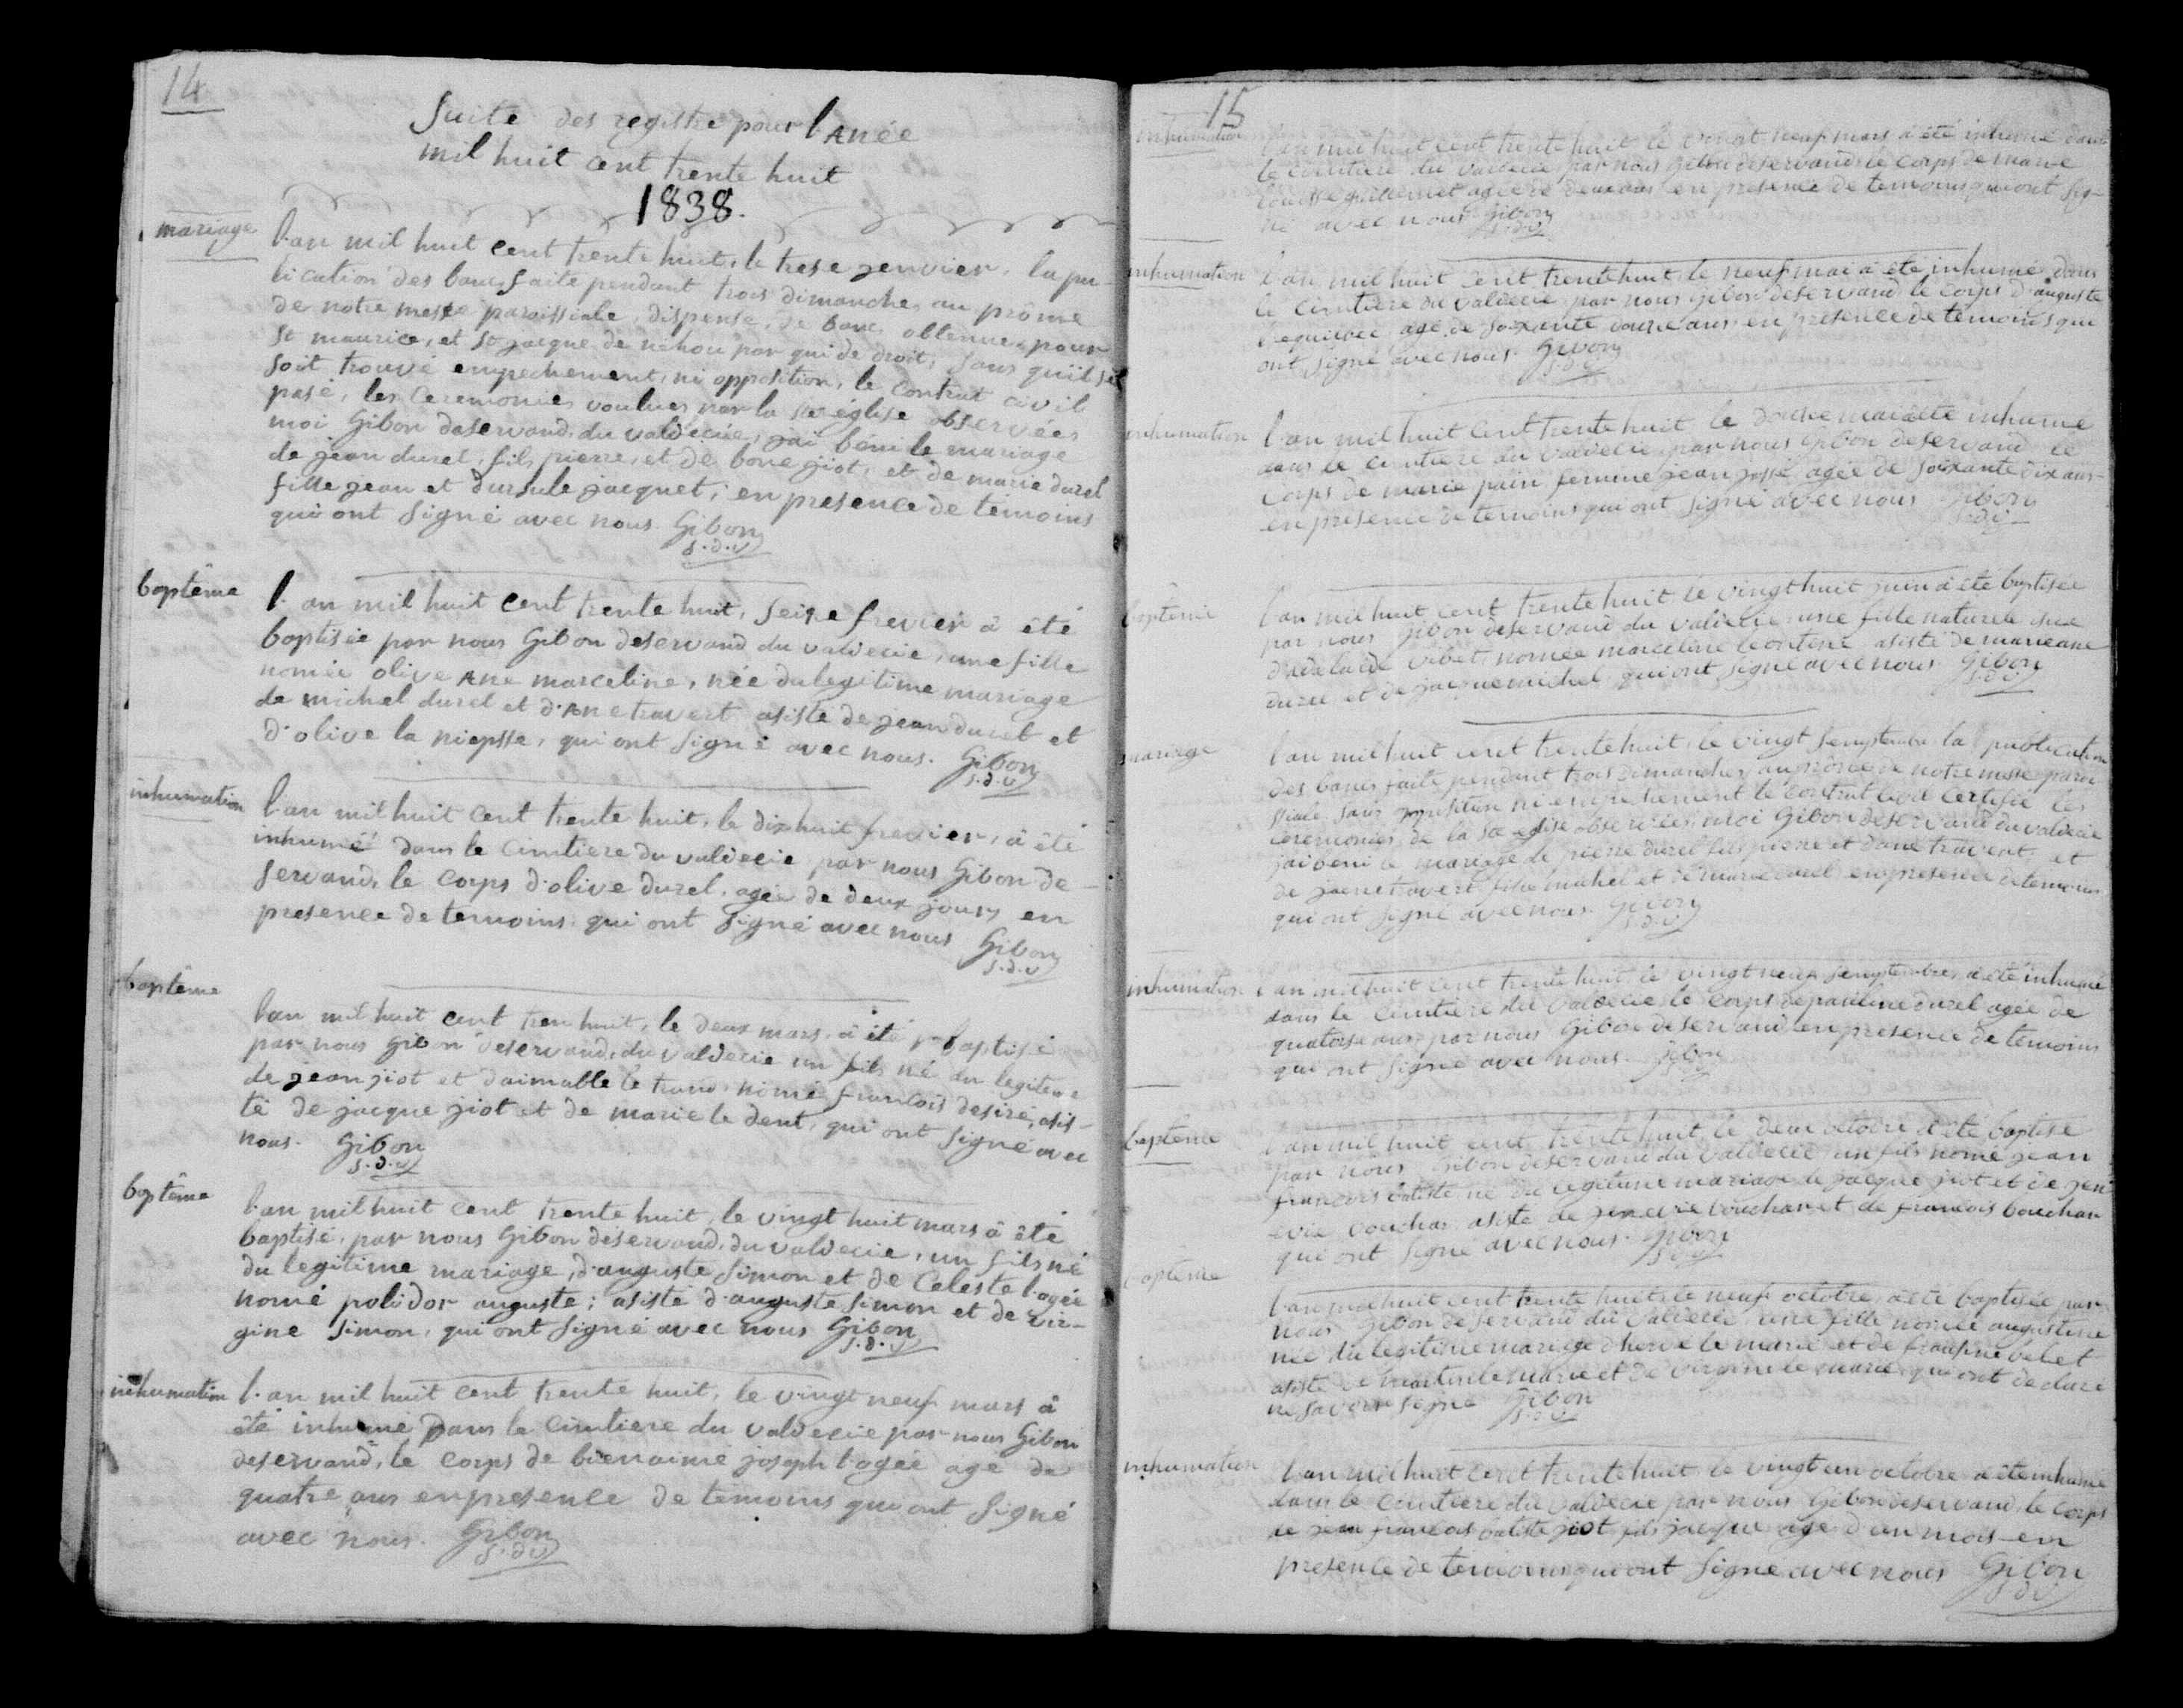 14
Suite des registre pour l'Anée
mil huit cent trente huit
1838.
mariage
l'an mil huit cent trente huit, le trese jenvier, la pu-
lication des bans faite pendant trois dimanches au prône
de notre messe paroissiale, dispense de banc obtenue pour
st maurice, et st jacque de néhou par qui de droit, sans qu'il se
soit trouvé empechement, ni opposition, le contrat civil
pasé, les ceremonies voulues par la ste église observées
moi Gibon deservand du valdecie, jai béni le mariage
de jean durel, fils pierre, et de bone jiot, et de marie durel
fille jean et dursule jacquet; en presence de témoins
qui ont signé avec nous. Gibon
s.d.v
baptême
l'an mil huit cent trente huit, seize frevier à été
baptisée par nous Gibon deservand du valdecie, une fille
nomée olive Ane marceline, née du legitime mariage
de michel durel et d'Ane travert asisté de jean durel et
d'olive la niepsse, qui ont signé avec nous. Gibon
s.d.v
inhumation
l'an mil huit cent trente huit, le dix huit frevier, à été
inhumé dans le cimtiere du valdecie par nous Gibon de-
servand, le corps d'olive durel, agée de deux jours en
presence de temoins qui ont signé avec nous Gibon
s.d.v
baptême
l'an mil huit cent tren huit, le deux mars, à été baptisé
par nous Gibon deservand, du valdecie un fils né du legitime
de jean jiot et daimable le trand nomé francois desiré, asis-
té de jacque jiot et de marie le dent, qui ont signé avec
nous. Gibon
s.d.v
baptême
l'an mil huit cent trente huit, le vingt huit mars à été
baptisé, par nous Gibon deservand, du valdecie, un fils né
du legitime mariage, d'auguste simon et de celeste l'agée
nomé polidor auguste; asisté d'auguste simon et de vir-
gine simon, qui ont signé avec nous Gibon
s.d.v
inhumation
l'an mil huit cent trente huit, le vingt neuf mars à
été inhumé dans le cimtiere du valdecie par nous Gibon
deservand, le corps de bienaimé joseph l'agée agé de
quatre ans en presence de temoins qui ont signé
avec nous. Gibon
s.d.v
15
inhumation
l'an mil huit cent trente huit le vingt neuf mars à été inhumé dans
le cimtiere du valdecie par nous Gibon deservand le corps de marie
agée de deux ans en presence de temoins qui ont sig-
né avec nous Gibon
s.d.v
inhumation
l'an mil huit cent trente huit, le neuf mai à été inhumé dans
le cimtiere du valdecie par nous Gibon deservand le corps d'auguste
agé de soixante douze ans en presence de temoins qui
ont signé avec nous. Gibon
s.d.v
inhumation
l'an mil huit cent trente huit le douze mai à été inhumé
dans le cimtiere du valdecie, par nous Gibon deservand le
corps de marie pain femme jean jossé agée de soixante dix ans
en presence de temoins qui ont signé avec nous Gibon
s.d.v
baptême
l'an mil huit cent trente huit le vingt huit juin à été baptisée
par nous Gibon deservand du valdecie une fille naturele née
d'adelaide vibet, nomée marceline leontine asisté de marie ane
durel et de jacque michel qui ont signé avec nous Gibon
s.d.v
mariage
l'an mil huit cent trente huit, le vingt semptembre la publication
des bancs faite pendant trois dimanches au prône de notre messe paroi
ssiale sans opposition ni empechement le contrat civil certifié les
ceremonies de la ste eglise observées, moi Gibon deservand du valdecie
jai béni le mariage de pierre durel fils pierre et d'ane travert, et
de travert fille michel et de marie durel en presence de temoins
qui ont signé avec nous. Gibon
s.d.v
inhumation
l'an mil huit cent trente huit, le vingt neuf semptembre, à été inhumé
dans le cimtiere du valdecie le corps de pauline durel agée de
quatorse ans, par nous Gibon deservand en presence de temoins
qui ont signé avec nous. Gibon
baptême
l'an mil huit cent trente huit le deux octobre à été baptisé
par nous Gibon deservand du valdecie, un fils nomé jean
francois batiste, né du legitime mariage de jacque jiot et de jen
evie bouchar asisté de jenevie bouchar et de francois bouchar
qui ont signé avec nous. Gibon
s.d.v
baptême
l'an mil huit cent trente huit, le neuf octobre, à été baptisée par
nous Gibon deservand du valdecie une fille nomée augustine
née du legitime mariage d'hervé le marié et de velet
asisté de le marié et de virginie le marié, qui ont declaré
ne savoir signé Gibon
s.d.v
inhumation
l'an mil huit cent trente huit, le vingt un octobre à été inhumé
dans le cimtiere du valdecie par nous Gibon deservand le corps
de jean francois batiste jiot fils jacque agé d'un mois en
presence de temoins qui ont signé avec nous Gibon
s.d.v